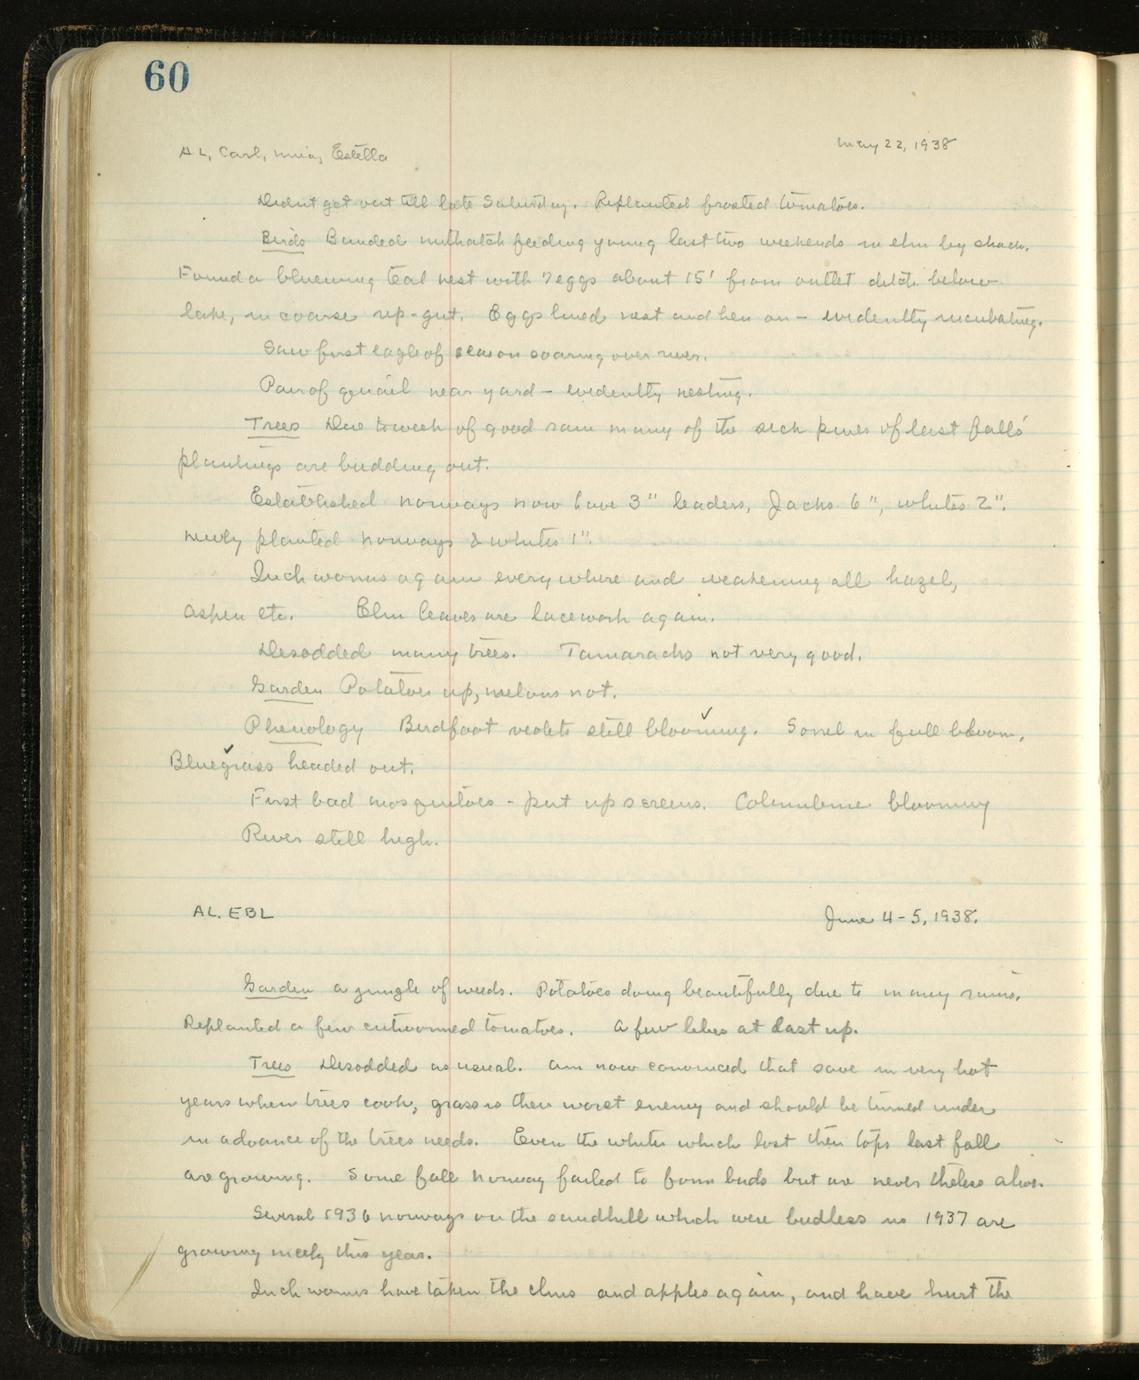 60
AL, Carl, Nina, Estella May 22, 1938
Didnt get out till late Saturday. Replanted frosted tomatoes.
Birds Banded nuthatch feeding young last two weekends in elm by shack.
Found a bluewing teal nest with 7 eggs about 15' from outlet ditch below
lake, in coarse rip-gut. Eggs lined nest and hen on — evidently incubating.
Saw first eagle of season soaring over river.
Pair of quail near yard — evidently nesting.
Trees Due to week of good rain many of the sick pines of last falls'
plantings are budding out.
Established norways now have 3" leaders, Jacks 6", whites 2".
Newly planted norways & whites 1".
Inch worms again everywhere and weakening all hazel,
aspen etc. Elm leaves are lacework again.
Desodded many trees. Tamaracks not very good.
Garden Potatoes up, melons not.
Phenology Birdfoot violets still blooming. Sorrel in full bloom.
Bluegrass headed out.
First bad mosquitoes - put up screens. Columbine blooming
River still high.
AL. EBL June 4-5, 1938.
Garden a jungle of weeds. Potatoes doing beautifully due to many rains.
Replanted a few cutwormed tomatoes. A few lilies at last up.
Trees Desodded as usual. Am now convinced that save in very hot
years when trees cook, grass is their worst enemy and should be turned under
in advance of the trees needs. Even the whites which lost their tops last fall
are growing. Some fall norway failed to form buds but are never theless alive.
Several 1936 norways on the sandhill which were budless in 1937 are
growing nicely this year.
Inch worms have taken the elms and apples again, and have hurt the